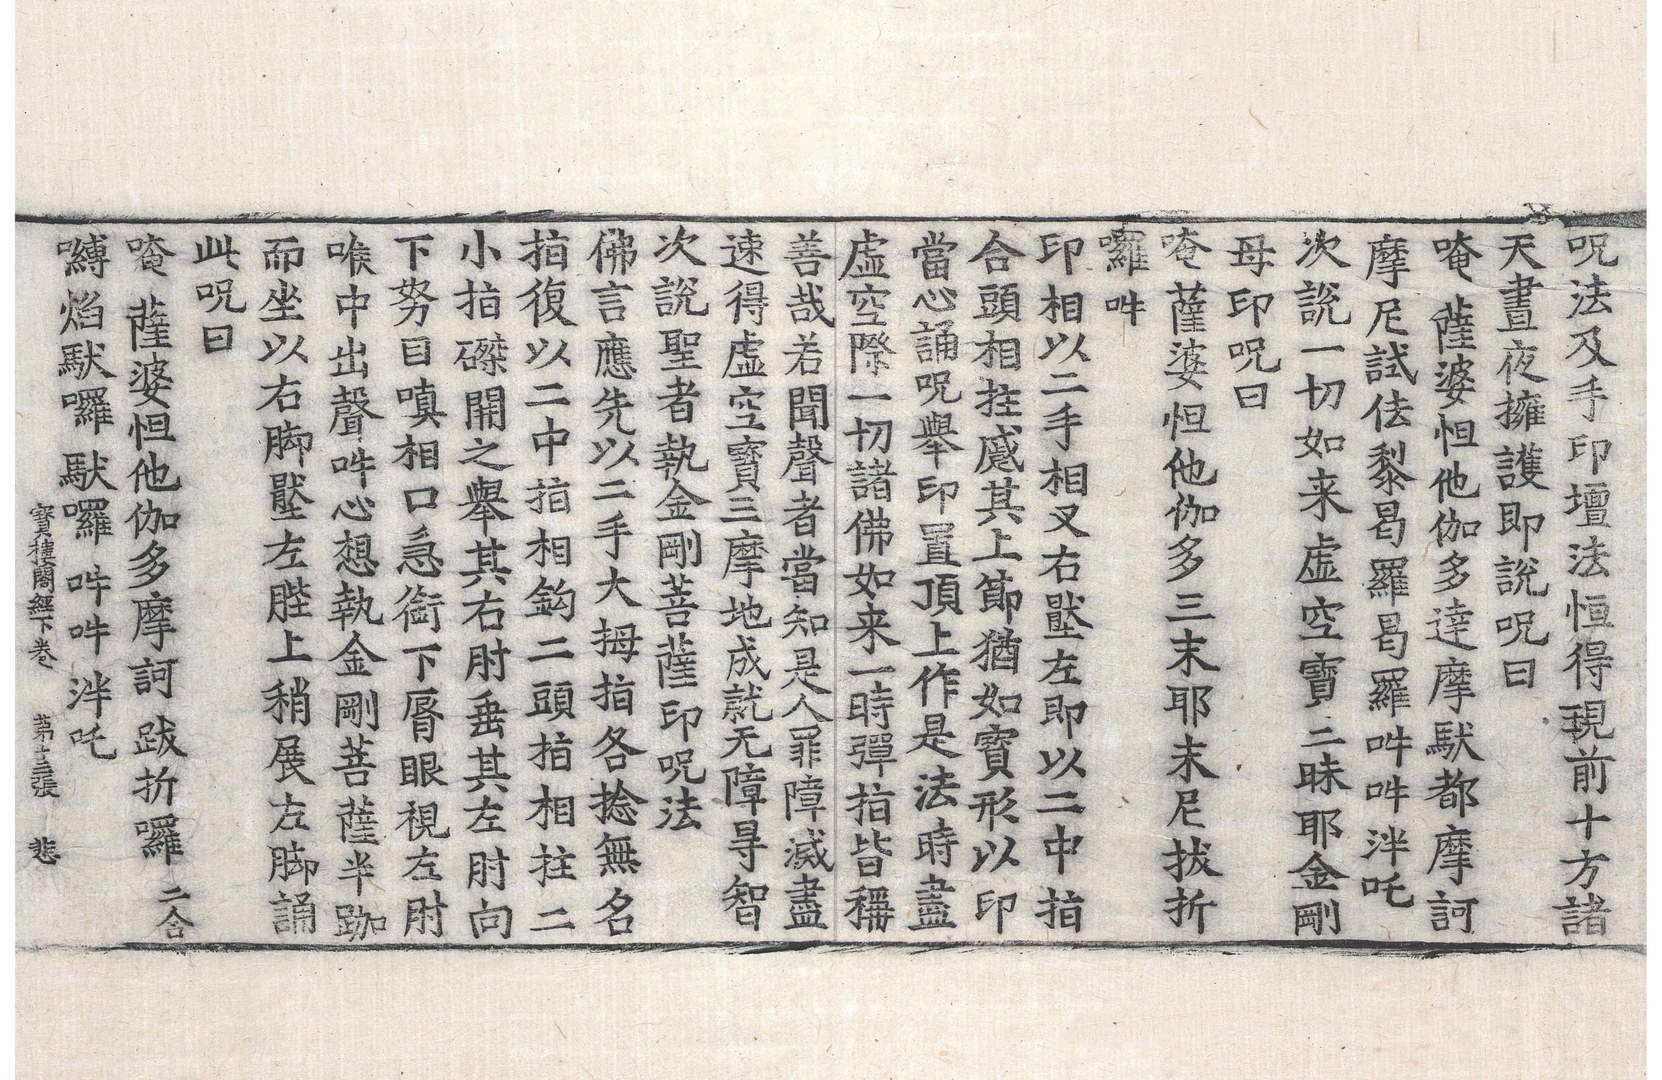 呪法及手印壇法恒得現前十方諸
天晝夜擁護即說呪曰
唵薩婆怛他伽多達摩馱都摩訶
摩尼試佉黎曷羅曷羅吽吽泮吒
次說一切如来虛空寶三昧耶金剛
母印呪曰
唵薩婆怛他伽多三末耶末尼拔折
囉吽
印相以二手相叉右壓左即以二中指
合頭相拄蹙其上節猶如寶形以印
當心誦呪舉印置頂上作是法時盡
虛空際一切諸佛如来一時彈指皆稱
善哉若聞聲者當知是人罪障滅盡
速得虛空寶三摩地成就无障㝵智
次說聖者執金剛菩薩印呪法
佛言應先以二手大拇指各捻無名
指復以二中指相鈎二頭指相拄二
小指磔開之舉其右肘垂其左肘向
下努目嗔相口急銜下脣眼視左肘
喉中出聲吽心想執金剛菩薩半跏
而坐以右脚壓左䏶上稍展左脚誦
此呪曰
唵薩婆怛他伽多摩訶跋折囉二合
嚩焰馱囉馱囉吽吽泮吒
寶樓閣經下卷 第十三張 悲